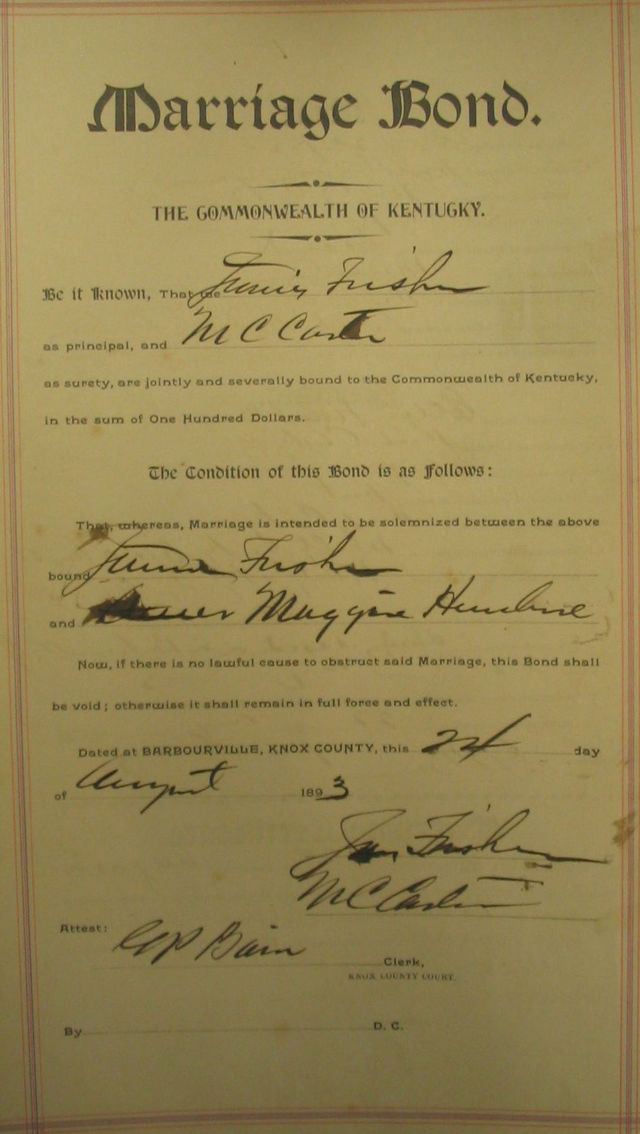 Marriage Bond.
THE COMMONWEALTH OF KENTUCKY.
Be it Known, That we Fisher
as principal, and M C Carter
as surety, are jointly and severally bound to the Commonwealth of Kentucky,
in the sum of One Hundred Dollars.
The Condition of this Bond is as Follows:
That, whereas, Marriage is intended to be solemnized between the above
bound Fisher
and Maggie
Now, if there is no lawful cause to obstruct said Marriage, this Bond shall
be void; otherwise it shall remain in full force and effect.
Dated at BARBOURVILLE, KNOX COUNTY, this 24 day
of August 1893
Fisher
M C Carter
Attest:
Clerk,
KNOX COUNTY COURT.
By D. C.